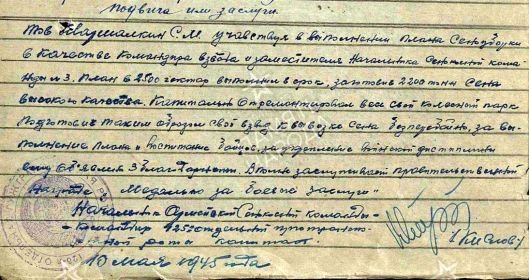 подвига или заслуги.
Тов Квашалкин С.М. участвуя в выполнении плана Сеноуборки
в качестве командира взвода и заместителя Начальника Сенокосной кома-
нды №3. План в 2500 гектар выполнил в срок, заготовив 2200 тонн Сена
высокого качества. Капитально отремонтировал весь свой колесный парк
подготовив таким образом свой взвод к вывозке Сена безпере за вы-
полнение плана и воспитание бойцов, за укрепление воинской дисциплины
ему объявлен 3 благодарности. Вполне заслуживает правительственной
Награды Медалью за боевые заслуги
Начальник Армейской Сенокосной команды-
- Командир 425 отдельной
рота капитан
10 мая 1945 года